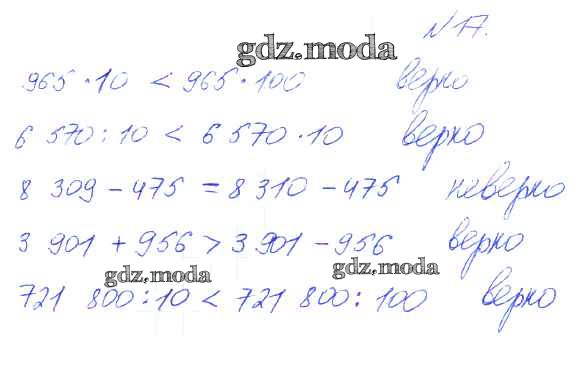 N 17.
gdz.moda
965 · 10 < 965 · 100 верно
6 570 : 10 < 6 570 · 10 верно
8 309 – 475 = 8 310 – 475 неверно
3 901 + 956 > 3 901 – 956 верно
gdz.moda gdz.moda
721 800 : 10 < 721 800 : 100 верно